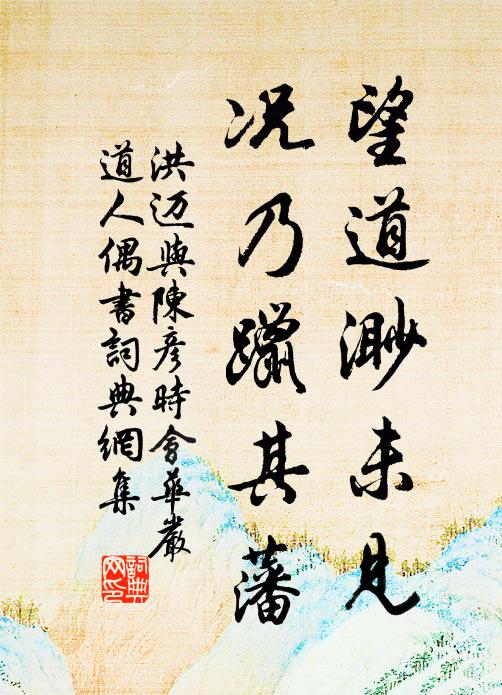 望道渺未見
況乃躐其藩
洪迈與陳彦時會華嚴
道人偶書詞典網集
詞典網印